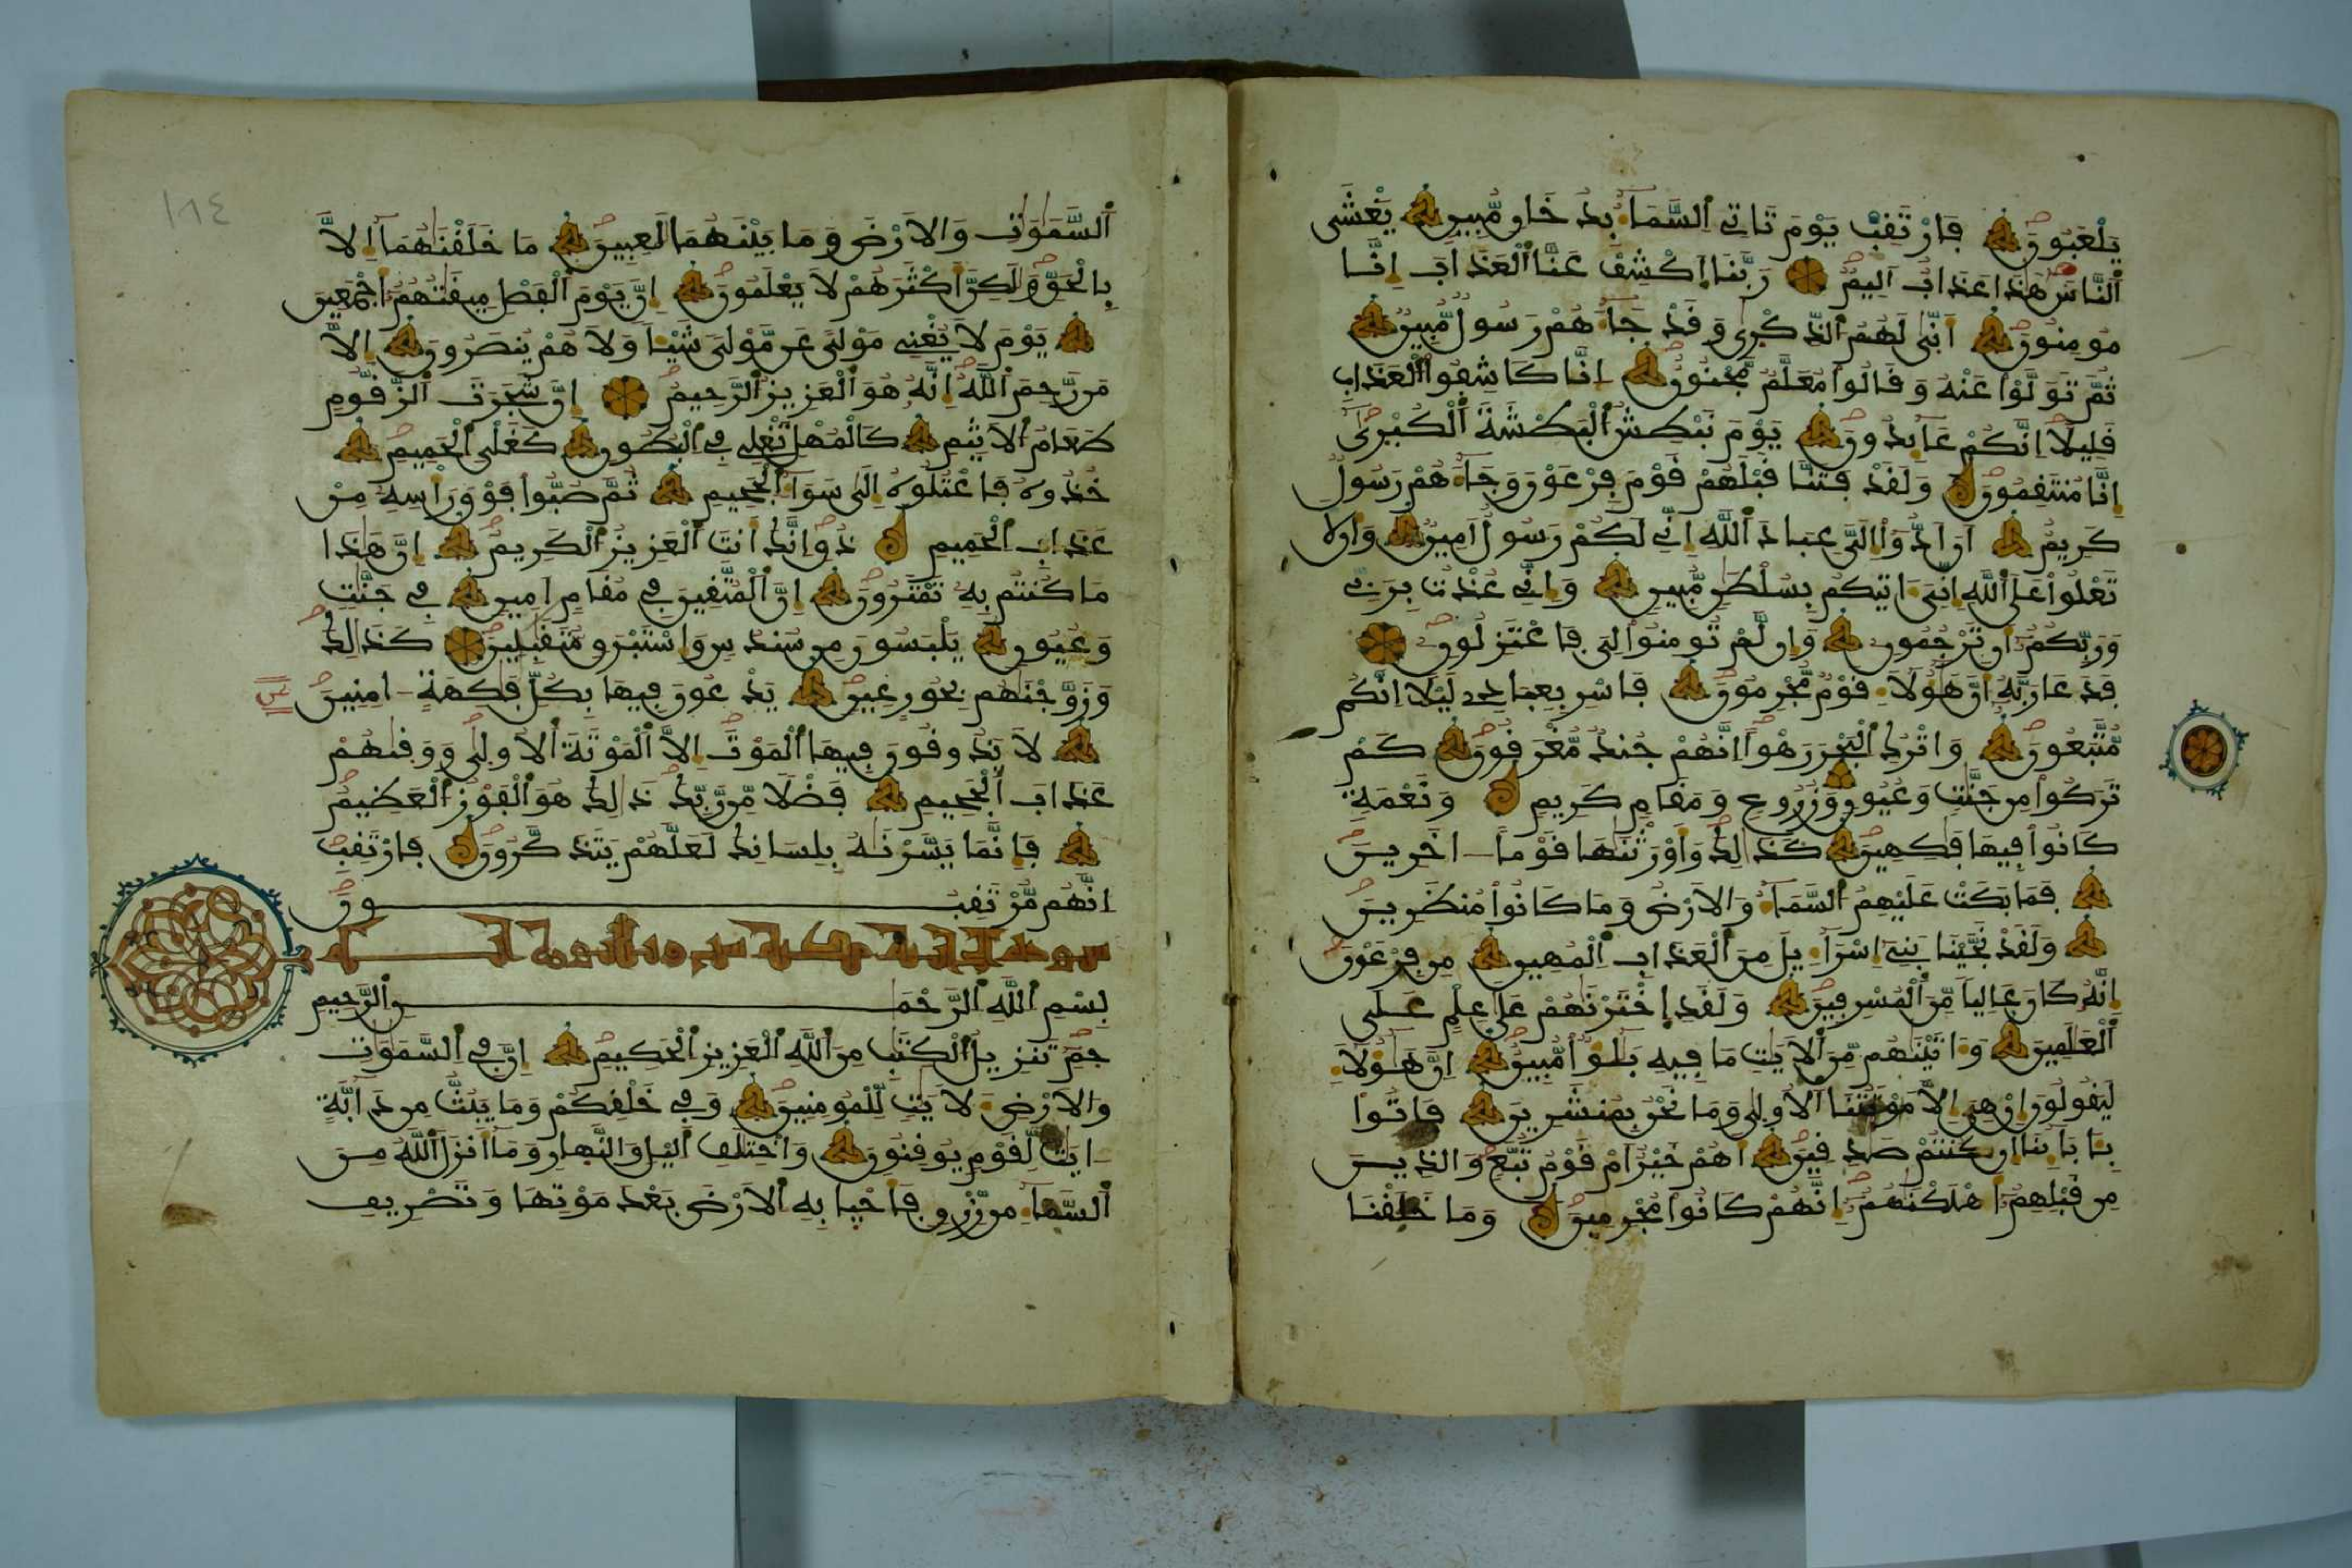 يَلْعَبُونَ فَارْتَقِبْ يَوْمَ تَاتِي السَّمَاءُ بِدُخَانٍ مُّبِينٍ يَغْشَى
النَّاسَ هَٰذَا عَذَابٌ اَلِيمٌ رَّبَّنَا اَكْشِفْ عَنَّا الْعَذَابَ إِنَّا
مُومِنُونَ أَنَّىٰ لَهُمُ الذِّكْرَىٰ وَقَدْ جَاءَهُمْ رَسُولٌ مُّبِينٌ
ثُمَّ تَوَلَّوْا عَنْهُ وَقَالُوا مُعَلَّمٌ مَّجْنُونٌ إِنَّا كَاشِفُوا الْعَذَابِ
قَلِيلًا اِنَّكُمْ عَائِدُونَ يَوْمَ نَبْطِشُ الْبَطْشَةَ الْكُبْرَىٰ
إِنَّا مُنتَقِمُونَ وَلَقَدْ فَتَنَّا قَبْلَهُمْ قَوْمَ فِرْعَوْنَ وَجَاءَهُمْ رَسُولٌ
كَرِيمٌ أَنَ اَدُّوا إِلَيَّ عِبَادَ اللَّهِ إِنِّي لَكُمْ رَسُولٌ اَمِينٌ وَأَن لَّا
تَعْلُوا عَلَى اللَّهِ إِنِّيَ ءَاتِيكُم بِسُلْطَٰنٍ مُّبِينٍ وَإِنِّي عُذْتُ بِرَبِّي
وَرَبِّكُمُ أَن تَرْجُمُونِ وَإِن لَّمْ تُومِنُوا لِيَ فَاعْتَزِلُونِ
فَدَعَا رَبَّهُ أَنَّ هَٰؤُلَاءِ قَوْمٌ مُّجْرِمُونَ فَاسْرِ بِعِبَادِي لَيْلًا اِنَّكُم
مُّتَّبَعُونَ وَاتْرُكِ الْبَحْرَ رَهْوًا اِنَّهُمْ جُندٌ مُّغْرَقُونَ كَمْ
تَرَكُوا مِن جَنَّٰتٍ وَعُيُونٍ وَزُرُوعٍ وَمَقَامٍ كَرِيمٍ وَنَعْمَةٍ
كَانُوا فِيهَا فَٰكِهِينَ كَذَٰلِكَ وَأَوْرَثْنَٰهَا قَوْمًا اٰخَرِينَ
فَمَا بَكَتْ عَلَيْهِمُ السَّمَاءُ وَالْاَرْضُ وَمَا كَانُوا مُنظَرِينَ
وَلَقَدْ نَجَّيْنَا بَنِي إِسْرَاءِيلَ مِنَ الْعَذَابِ الْمُهِينِ مِن فِرْعَوْنَ
إِنَّهُ كَانَ عَالِيًا مِّنَ الْمُسْرِفِينَ وَلَقَدِ اِخْتَرْنَٰهُمْ عَلَىٰ عِلْمٍ عَلَى
الْعَٰلَمِينَ وَءَاتَيْنَٰهُم مِّنَ الْاٰيَٰتِ مَا فِيهِ بَلَٰٓؤٌا مُّبِينٌ إِنَّ هَٰؤُلَاءِ
لَيَقُولُونَ إِنْ هِيَ إِلَّا مَوْتَتُنَا الْاُولَىٰ وَمَا نَحْنُ بِمُنشَرِينَ فَاتُوا
بِـَٔابَائِنَا إِن كُنتُمْ صَٰدِقِينَ أَهُمْ خَيْرٌ اَمْ قَوْمُ تُبَّعٍ وَالَّذِينَ
مِن قَبْلِهِمُ أَهْلَكْنَٰهُمُ إِنَّهُمْ كَانُوا مُجْرِمِينَ وَمَا خَلَقْنَا
١٨٤
السَّمَٰوَٰتِ وَالْاَرْضَ وَمَا بَيْنَهُمَا لَٰعِبِينَ مَا خَلَقْنَٰهُمَا إِلَّا
بِالْحَقِّ وَلَٰكِنَّ أَكْثَرَهُمْ لَا يَعْلَمُونَ إِنَّ يَوْمَ الْفَصْلِ مِيقَٰتُهُمُ أَجْمَعِينَ
يَوْمَ لَا يُغْنِي مَوْلًى عَن مَّوْلًى شَيْـًٔا وَلَا هُمْ يُنصَرُونَ إِلَّا
مَن رَّحِمَ اللَّهُ إِنَّهُ هُوَ الْعَزِيزُ الرَّحِيمُ إِنَّ شَجَرَتَ الزَّقُّومِ
طَعَامُ الْاَثِيمِ كَالْمُهْلِ تَغْلِي فِي الْبُطُونِ كَغَلْيِ الْحَمِيمِ
خُذُوهُ فَاعْتُلُوهُ إِلَىٰ سَوَاءِ الْجَحِيمِ ثُمَّ صُبُّوا فَوْقَ رَأْسِهِ مِنْ
عَذَابِ الْحَمِيمِ ذُقِ اِنَّكَ أَنتَ الْعَزِيزُ الْكَرِيمُ إِنَّ هَٰذَا
مَا كُنتُم بِهِ تَمْتَرُونَ إِنَّ الْمُتَّقِينَ فِي مُقَامٍ اَمِينٍ فِي جَنَّٰتٍ
وَعُيُونٍ يَلْبَسُونَ مِن سُندُسٍ وَإِسْتَبْرَقٍ مُّتَقَٰبِلِينَ كَذَٰلِكَ
وَزَوَّجْنَٰهُم بِحُورٍ عِينٍ يَدْعُونَ فِيهَا بِكُلِّ فَٰكِهَةٍ اٰمِنِينَ
لَا يَذُوقُونَ فِيهَا الْمَوْتَ إِلَّا الْمَوْتَةَ الْاُولَىٰ وَوَقَىٰهُمْ
عَذَابَ الْجَحِيمِ فَضْلًا مِّن رَّبِّكَ ذَٰلِكَ هُوَ الْفَوْزُ الْعَظِيمُ
فَإِنَّمَا يَسَّرْنَٰهُ بِلِسَانِكَ لَعَلَّهُمْ يَتَذَكَّرُونَ فَارْتَقِبِ
اِنَّهُم مُّرْتَقِبُونَ
سورة الجاثية مكية ست وثلاثون اية
بِسْمِ اللَّهِ الرَّحْمَٰنِ الرَّحِيمِ
حمٓ تَنزِيلُ الْكِتَٰبِ مِنَ اللَّهِ الْعَزِيزِ الْحَكِيمِ إِنَّ فِي السَّمَٰوَٰتِ
وَالْاَرْضِ لَأٓيَٰتٍ لِّلْمُومِنِينَ وَفِي خَلْقِكُمْ وَمَا يَبُثُّ مِن دَابَّةٍ
اٰيَٰتٌ لِّقَوْمٍ يُوقِنُونَ وَاخْتِلَٰفِ الَّيْلِ وَالنَّهَارِ وَمَا أَنزَلَ اللَّهُ مِنَ
السَّمَاءِ مِن رِّزْقٍ فَأَحْيَا بِهِ الْاَرْضَ بَعْدَ مَوْتِهَا وَتَصْرِيفِ